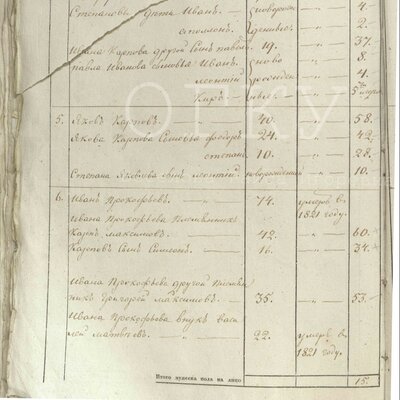 Степановы дѣти Иванъ. новорож 4.
аполлонъ денные 2.
Ивана Карпова другой сынъ павелъ 19. " 37.
павла Иванова сыновья Иванъ ново " 8.
леонтій рожден " 4.
Киръ ные
5. Яковъ Карповъ. 40. " 58.
Якова Карпова сыновья федоръ 24. " 42.
степанъ 10. " 28.
Степана Яковлева сынъ леонтій новорожденный " 10.
6. Иванъ Прокофьевъ. 74. умеръ въ
1821 году.
Ивана Прокофьева племянникъ
Карпъ Максимовъ. 42. " 60.
Карповъ сынъ Симеонъ. 16. " 34.
Ивана Прокофьева другой племян
никъ Григорей Максимовъ. 35. " 53.
Ивана Прокофьева внукъ васи
лей матвѣевъ. 22. умеръ въ
1821 году.
Итого мужеска пола на лицо 15.